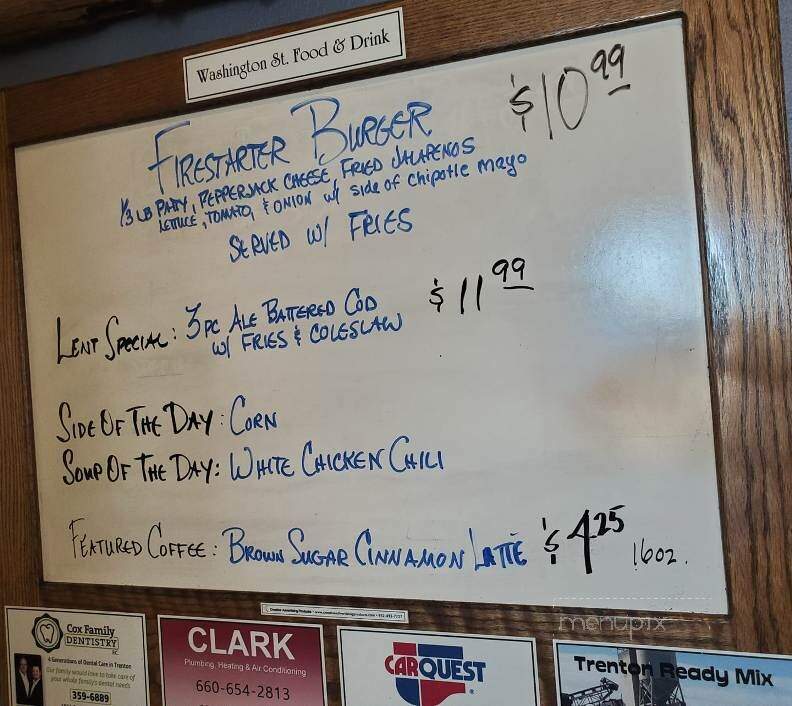 Washington St. Food & Drink
FIRESTARTER BURGER $10 99
1/3 LB PATTY, PEPPERJACK CHEESE, FRIED JALAPENOS
LETTUCE, TOMATO, & ONION w/ side of chipotle mayo
SERVED W/ FRIES
LENT SPECIAL: 3 PC ALE BATTERED COD $11 99
W/ FRIES & COLESLAW
SIDE OF THE DAY: CORN
SOUP OF THE DAY: WHITE CHICKEN CHILI
FEATURED COFFEE: BROWN SUGAR CINNAMON LATTE $4 25 16oz.
menupix
Cox Family
DENTISTRY
4 Generations of Dental Care in Trenton
Our family would love to take care of
your whole family's dental needs
359-6889
CLARK
Plumbing, Heating & Air Conditioning
660-654-2813
CARQUEST
Trenton Ready Mix